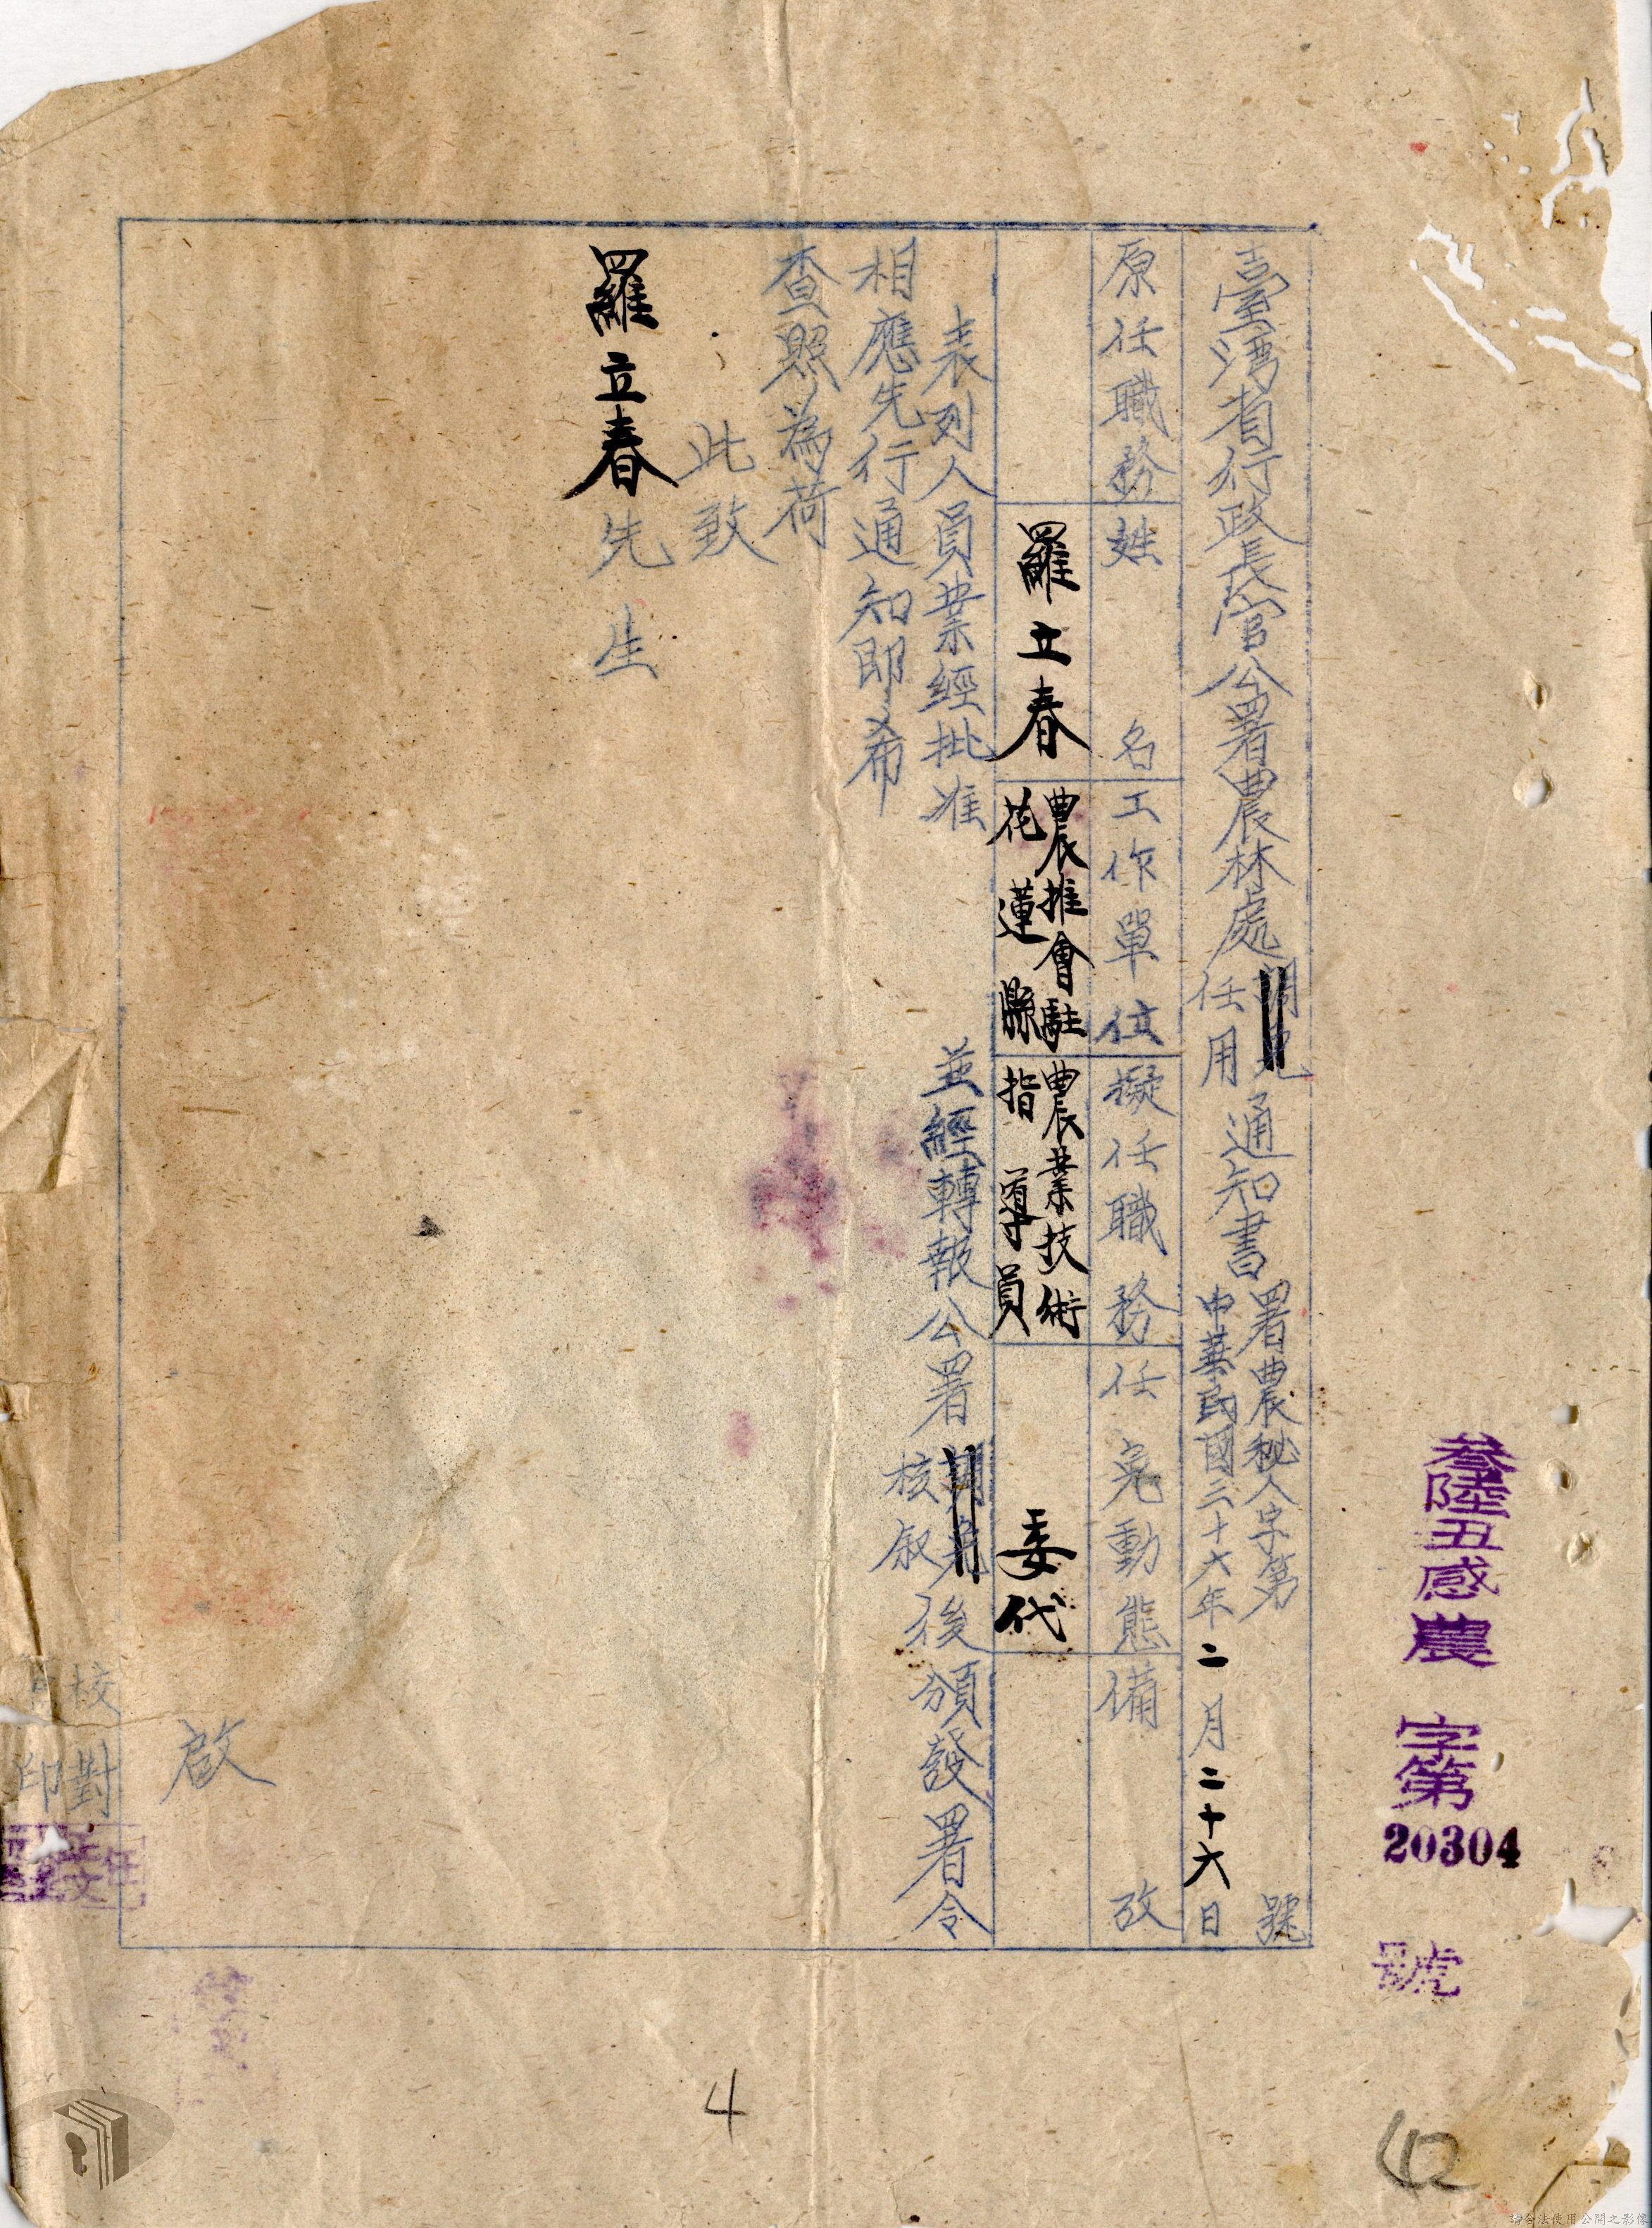 叁陸丑感農 字第 20304 號
臺灣省行政長官公署農林處任用通知書
署農秘人字第 號
中華民國三十六年二月二十六日
原任職務 姓名 工作單位 擬任職務 任免動態 備攷
羅立春
農推會駐
花蓮縣
農業技術
指導員
委代
表列人員業經批准 並經轉報公署核叙後頒發署令
相應先行通知即希
查照為荷
此致
羅立春先生
啟
校對
印
4
42